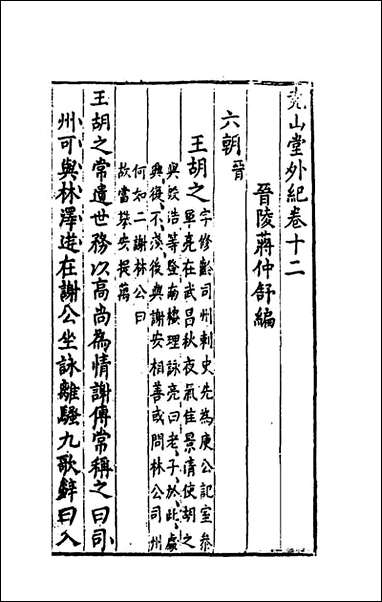 堯山堂外紀卷十二
晉陵蔣仲舒編
六朝晉
王胡之字修齡司州刺史先為庾公記室參
軍亮在武昌秋夜氣佳景清使胡之
與殷浩等登南樓理詠亮曰老子於此處
興復不淺後與謝安相善或問林公司州
何如二謝林公曰
故當攀安提萬
王胡之常遺世務以高尚為情謝傅常稱之曰司
州可與林澤遊在謝公坐詠離騷九歌辭曰入